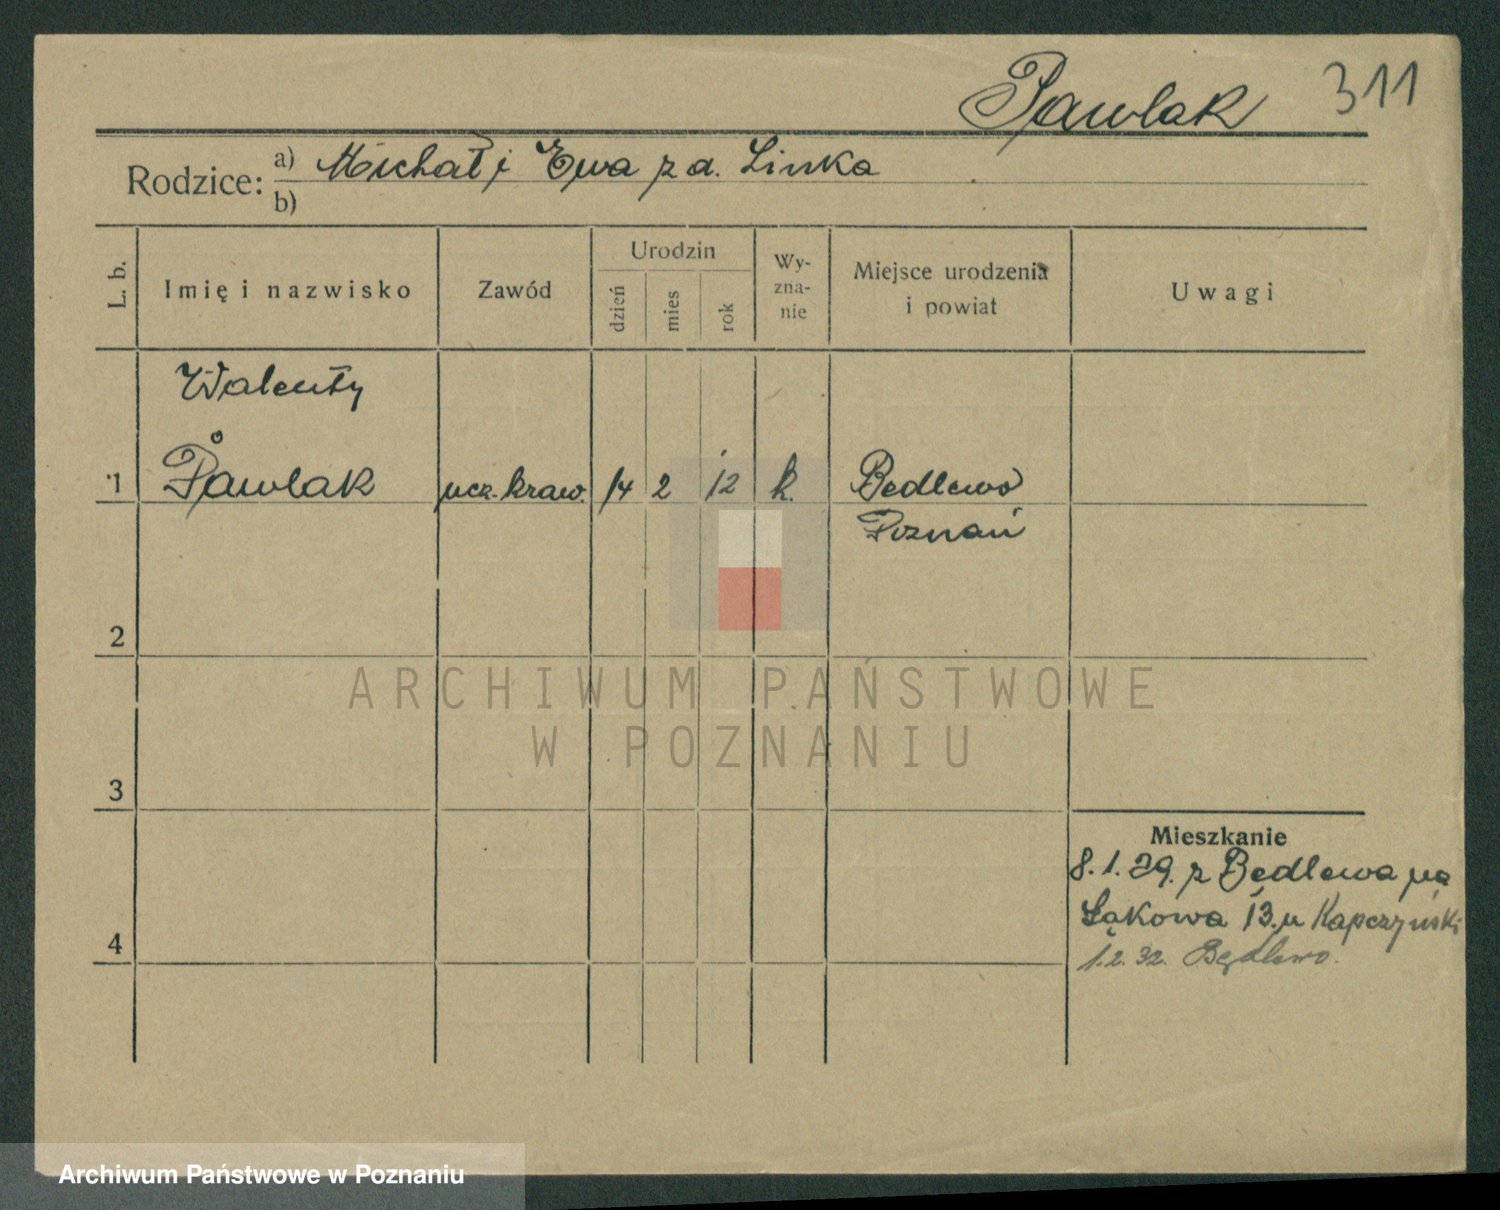 Pawlak 311
Rodzice: a) Michał i Ewa z d. Linka
b)
L. b. Imię i nazwisko Zawód Urodzin dzień mies rok Wy-zna-nie Miejsce urodzenia i powiat Uwagi
Walenty
1 Pawlak ucz. kraw. 14 2 12 k. Bedlewo
Poznań
2
ARCHIWUM PAŃSTWOWE
W POZNANIU
3
Mieszkanie
8.1.29. z Będlewa na
Łąkowa 13. u Kapczyński
4
1.2.32. Będlewo.
Archiwum Państwowe w Poznaniu